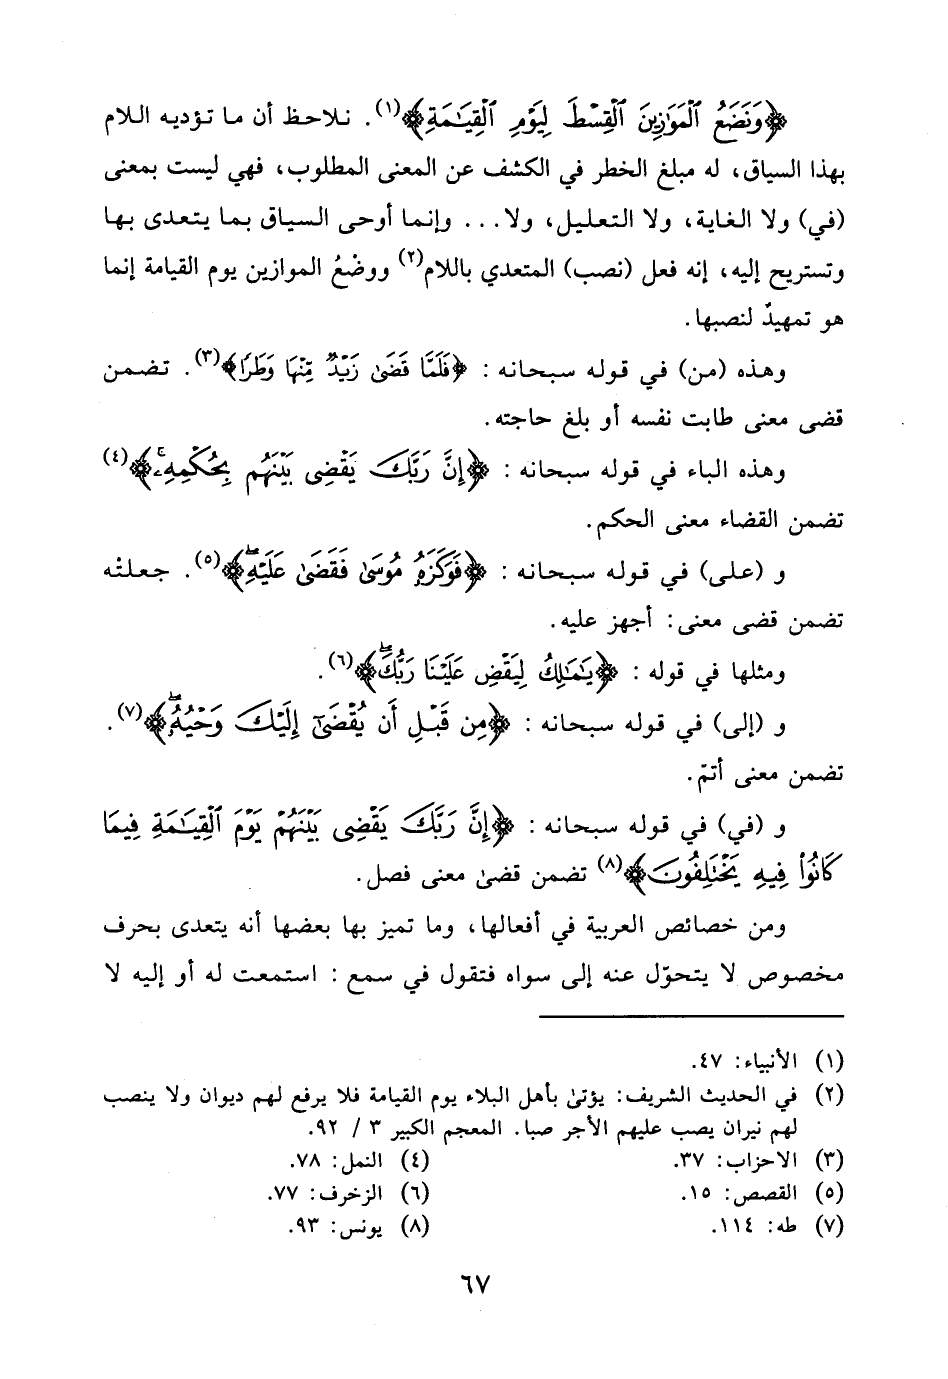 ﴿وَنَضَعُ الْمَوَازِينَ الْقِسْطَ لِيَوْمِ الْقِيَامَةِ﴾(١). نلاحظ أن ما تؤديه اللام
بهذا السياق، له مبلغ الخطر في الكشف عن المعنى المطلوب، فهي ليست بمعنى
(في) ولا الغاية، ولا التعليل، ولا... وإنما أوحى السياق بما يتعدى بها
وتستريح إليه، إنه فعل (نصب) المتعدي باللام(٢) ووضْعُ الموازين يوم القيامة إنما
هو تمهيدٌ لنصبها.
وهذه (من) في قوله سبحانه: ﴿فَلَمَّا قَضَىٰ زَيْدٌ مِّنْهَا وَطَرًا﴾(٣). تضمن
قضى معنى طابت نفسه أو بلغ حاجته.
وهذه الباء في قوله سبحانه: ﴿إِنَّ رَبَّكَ يَقْضِي بَيْنَهُم بِحُكْمِهِۦۚ﴾(٤)
تضمن القضاء معنى الحكم.
و (على) في قوله سبحانه: ﴿فَوَكَزَهُۥ مُوسَىٰ فَقَضَىٰ عَلَيْهِۖ﴾(٥). جعلتْه
تضمن قضى معنى: أجهز عليه.
ومثلها في قوله: ﴿يَٰمَٰلِكُ لِيَقْضِ عَلَيْنَا رَبُّكَۖ﴾(٦).
و (إلى) في قوله سبحانه: ﴿مِن قَبْلِ أَن يُقْضَىٰٓ إِلَيْكَ وَحْيُهُۥۖ﴾(٧).
تضمن معنى أتمّ.
و (في) في قوله سبحانه: ﴿إِنَّ رَبَّكَ يَقْضِي بَيْنَهُمْ يَوْمَ الْقِيَٰمَةِ فِيمَا
كَانُوا۟ فِيهِ يَخْتَلِفُونَ﴾(٨) تضمن قضىٰ معنى فصل.
ومن خصائص العربية في أفعالها، وما تميز بها بعضها أنه يتعدى بحرف
مخصوص لا يتحوّل عنه إلى سواه فتقول في سمع: استمعت له أو إليه لا
(١) الأنبياء: ٤٧.
(٢) في الحديث الشريف: يؤتىٰ بأهل البلاء يوم القيامة فلا يرفع لهم ديوان ولا ينصب
لهم نيران يصب عليهم الأجر صبا. المعجم الكبير ٣ / ٩٢.
(٣) الاحزاب: ٣٧. (٤) النمل: ٧٨.
(٥) القصص: ١٥. (٦) الزخرف: ٧٧.
(٧) طه: ١١٤. (٨) يونس: ٩٣.
٦٧